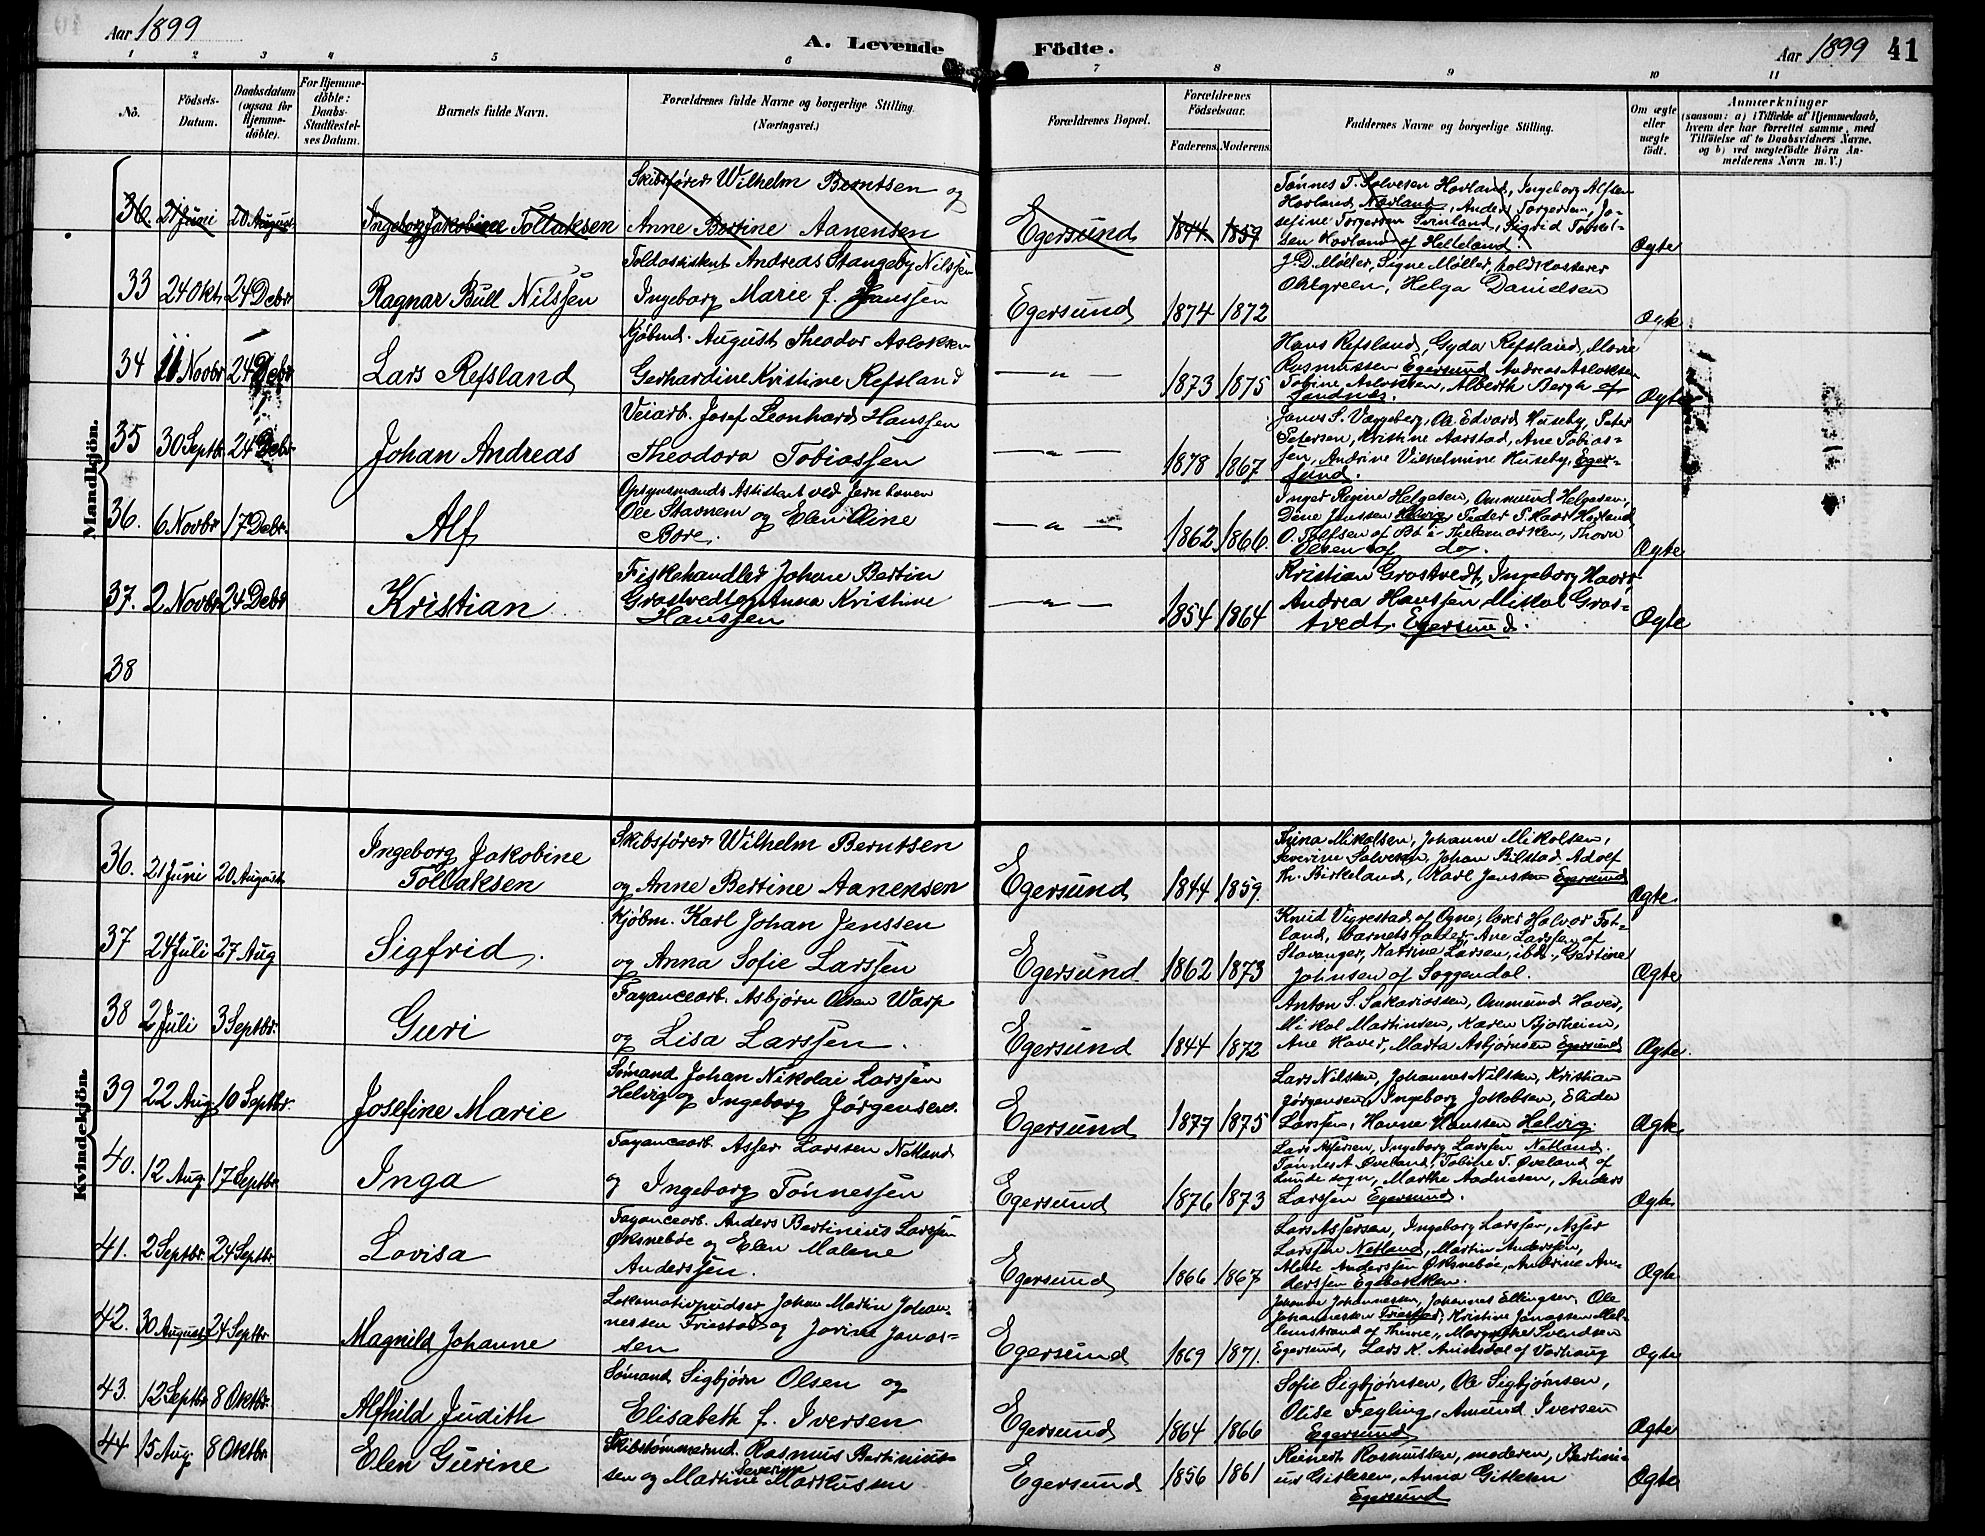 Aar 1899
A. Levende Födte.
Aar 1899 41
1 2 3 4 5 6 7 8 9 10 11
No.
Födsels-Datum.
Daabsdatum (ogsaa for Hjemmedöbte).
For Hjemmedöbte: Daabs-Stadfæstelses Datum.
Barnets fulde Navn.
Forældrenes fulde Navne og borgerlige Stilling. (Næringsvei.)
Forældrenes Bopæl.
Forældrenes Födselsaar.
Faderens. Moderens.
Faddernes Navne og borgerlige Stilling.
Om ægte eller uægte födt.
Anmærkninger
(saasom: a) i Tilfælde af Hjemmedaab, hvem der har forrettet samme, med Tilföielse af to Daabsvidners Navne, og b) ved uægtefödte Börn Anmelderens Navn m. V.)
Mandkjön.
36. 21 Juni 20 August Ingeborg Jakobine Tollaksen
Skibsfører Wilhelm Berntsen og
Anne Bertine Aanensen
Egersund 1844 1859
Tönnes T. Solvesen Hovland, Ingeborg Alfsen
Hovland, Anders Torgersen, Jo-
sefine Torgersen Svinland, Sigrid
Hovland af Helleland
Ægte
33 24 Okt. 24 Debr Ragnar Bull Nilssen
Toldassistent Andreas Stangeby Nilssen
Ingeborg Marie f. Hanssen
Egersund 1874 1872
J. D. Møller, Signe Møller, toldkasserer
Ohlgreen, Helga Danielsen
Ægte
34 11 Novbr 24 Debr Lars Refsland
Kjøbmd. August Theodor Aslaksen
Gerhardine Kristine Refsland
— " — 1873 1875
Hans Refsland, Gyda Refsland, Marie
Rasmussen Egersund Andreas Aslaksen
Tobine Aslaksen, Alberth Bergh af
Sandnæs.
Ægte
35 30 Septbr 24 Debr Johan Andreas
Veiarb. Josef Leonhard Hanssen
Theodora Tobiassen
— " — 1878 1867
Janus S. Væggeberg, Ole Edvard Huseby, Peter
Petersen, Kristine Aarstad, Ane Tobias-
sen, Andrine Vilhelmine Huseby, Eger-
sund.
36. 6 Novbr 17 Debr. Alf
Opsynsmands Assistent ved Jernbanen
Ole Stavnem og Elen Oline
Bore.
— " — 1862 1866.
Inger Regine Helgesen, Ommund Helgesen,
Dine Janssen Helvig Peder P. Hovland
O. Tolfsen af Bö i Thelemarken, Thora
Olsen af do.
Ægte
37. 2 Novbr 24 Debr Kristian
Fiskehandler Johan Bertin
Grostvedt og Anna Kristine
Hanssen
— " — 1854 1864
Kristian Grostvedt, Ingeborg Haver
Andrea Hanssen Mikal Gros-
tvedt. Egersund.
Ægte
38
Kvindekjön.
36. 21 Juni 20 August Ingeborg Jakobine
Tollaksen
Skibsfører Wilhelm Berntsen
og Anne Bertine Aanensen
Egersund 1844 1859.
Thina Mikalsen, Johanne Mikalsen,
Severine Salvesen, Johan Bilstad Adolf
Th. Birkeland, Karl Jensen Egersund
Ægte.
37 24 Juli 27 Aug Sigfrid.
Kjøbm. Karl Johan Jenssen
og Anna Sofie Larssen
Egersund. 1862 1873
Knud Vigrestad af Ogne, lærer Halvor Tot-
land, barnets fader, Ane Larssen af
Stavanger, Katrine Larsen, ibd., Gertine
Johnsen af Soggendal.
Ægte
38 2 Juli 3 Septbr. Guri
Fayancearb. Asbjørn Olsen Warp
og Lisa Larssen.
Egersund 1844 1872
Anton S. Sakariassen, Ommund Haver,
Mikal Martinsen, Karen Bjorheim,
Ane Haver, Marta Asbjørnsen Egersund
Ægte.
39 22 Aug 10 Septbr. Josefine Marie
Sømand Johan Nikolai Larssen
Helvig og Ingeborg Jørgensen.
Egersund 1877 1875
Lars Nilsen, Johannes Nilsen, Kristian
Jørgensen, Ingeborg Jakobsen, Elider
Larssen, Hanne Hanssen Helvig.
Ægte
40. 12 Aug 17 Septbr. Inga
Fayancearb. Asser Larssen Netland
og Ingeborg Tönnessen
Egersund 1876 1873
Lars Assersen, Ingeborg Larssen Netland.
Tönnes A. Øveland, Tobine T. Øveland af
Lunde sogn, Marthe Aadnesen, Anders
Larssen Egersund.
Ægte
41. 2 Septbr. 24 Septbr. Lovisa
Fayancearb. Anders Bertinius Larssen
Øksnebøe og Elen Malene
Anderssen.
Egersund 1866 1867
Lars Assersen, Ingeborg Larssen, Asser
Larssen Netland, Martin Anderssen,
Alette Anderssen Øksnebøe, Andrine An-
derssen Egebakken.
Ægte
42. 30 August 24 Septbr Magnild Johanne
Lokomotivpudser Johan Martin Johan-
nessen Friestad og Jorine Jonas-
sen
Egersund 1869 1871.
Johanne Johannessen, Johannes Ellingsen, Ole
Johannessen Friestad, Kristine Jonassen Mel-
lemstrand af Thime, Margrethe Svendsen
Egersund, Lars K. Aniksdal af Varhaug
Ægte
43. 12 Septbr 8 Oktbr. Alfhild Judith
Sømand Sigbjørn Olsen og
Elisabeth f. Iversen
Egersund 1864 1866
Sofie Sigbjørnsen, Ole Sigbjørnsen,
Olise Feyling, Amund Iversen
Egersund
Ægte
44 15 Aug. 8 Oktbr. Elen Gurine
Skibstømmermd. Rasmus Bertinius-
sen og Martine Severine Markussen
Egersund 1856 1861
Reinert Rasmussen, moderen, Bertini-
us Gitlesen, Anna Gitlesen
Egersund
Ægte